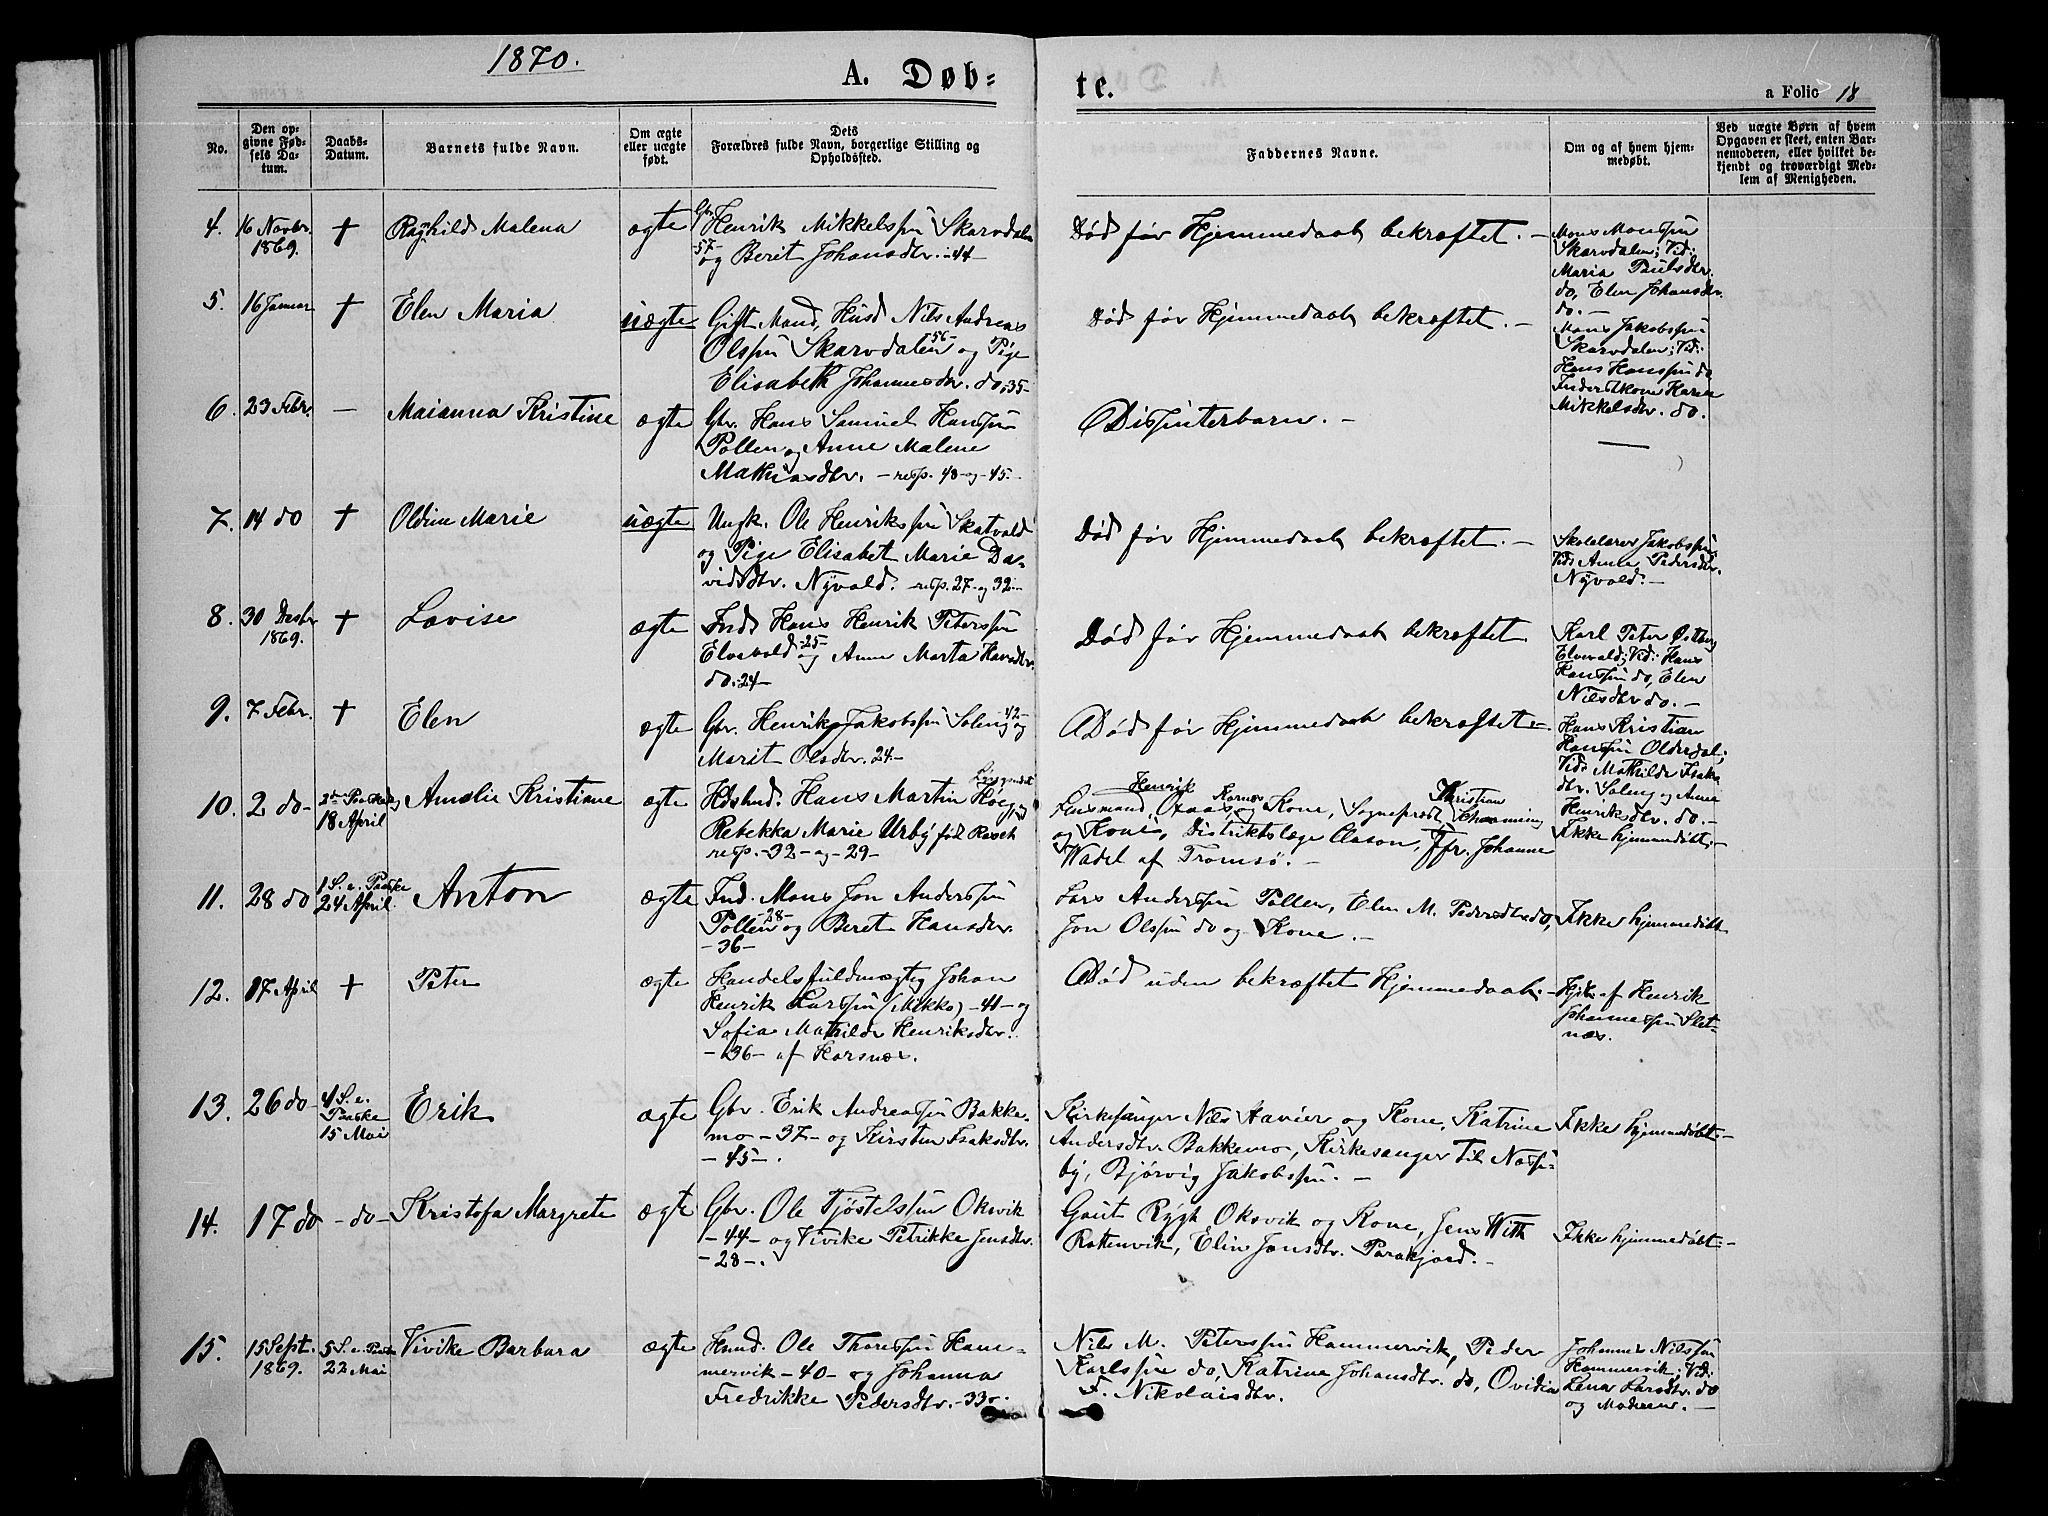 1870.
A. Døb=
te.
a Folio 18
No.
Den op-
givne Fød-
sels Da-
tum.
Daabs-
Datum.
Barnets fulde Navn.
Om ægte
eller uægte
født.
Dets
Forældres fulde Navn, borgerlige Stilling og
Opholdssted.
Faddernes Navne.
Om og af hvem hjem-
medøbt.
Ved uægte Børn af hvem
Opgaven er skeet, enten Bar-
nemoderen, eller hvilket be-
kjendt og troværdigt Med-
lem af Menigheden.
4.
16 Novbr.
1869.
+
Raghild Malena
ægte
Gbr. Henrik Mikkelssøn Skarvdalen
57- og Berit Johansdtr. -44-
Død før Hjemmedaab bekræftet. -
Mons Monssøn
Skarvdalen; Vid:
Maria Paulsdtr.
do, Elen Johansdtr.
do. -
5.
16 Januar
+
Elen Maria
uægte
Gift Mand, Husd Nils Andreas
Olssøn Skarvdalen -56- og Pige
Elisabeth Johannesdtr. do. 35-
Død før Hjemmedaab bekræftet. -
Mons Jakobssøn
Skarvdalen; Vid:
Hans Hanssøn do
Inderstkone Karen
Mikkelsdtr. do.
6.
23 Febr.
-
Maianna Kristine
ægte
Gbr. Hans Samuel Hanssøn
Pollen og Anne Malene
Mathiasdtr. - resp. 48 - og - 45. -
Dissinterbarn. -
7.
14 do
+
Oldine Marie
uægte
Ungk. Ole Henrikssøn Skatvold
og Pige Elisabet Marie Da-
vidsdtr. Nyvold. - resp. 27 - og 32. -
Død før Hjemmedaab bekræftet. -
Skolelærer Jakobssøn;
Vid: Amle Pedersdtr.
Nyvold. -
8.
30 Desbr
1869.
+
Lovise
ægte
Ind. Hans Henrik Peterssøn
Elvevold -25- og Anne Marta Hansdtr.
do. -24-
Død før Hjemmedaab bekræftet
Karl Peter Østberg
Elvevold; Vid: Hans
Hanssøn do, Elen
Nilsdtr do. -
9.
7 Febr.
+
Elen
ægte
Gbr. Henrik Jakobssøn Soleng -42- og
Marit Olsdtr. 24. -
Død før Hjemmedaab bekræftet. -
Hans Kristian
Hanssøn Olderdal;
Vid: Mathilde Isaks
dtr. Soleng og Anne
Henriksdtr. do. -
10.
2 do -
2den Paaskedag
18 April
Amalie Kristiane
ægte
Hdshnd. Hans Martin Høeg og
Rebekka Marie Urby født Rasch
resp. - 32 - og - 29 -
Lensmand Henrik Aas, Karnes og Kone, Sogneprest Kristian
og Kone, Distriktslæge Clason, Jfr. Johanne
Wadel af Tromsø. -
Ikke hjemmedøbt. -
11.
28 do
1 S. e. Paaske
24 April
Anton
ægte
Ind. Mons Jon Anderssøn
Pollen -28- og Beret Hansdtr.
-36-
Lars Anderssøn Pollen, Elen M. Pedersdtr do,
Jon Olssøn do og Kone. -
Ikke hjemmedøbt
12.
17 April
+
Peter
ægte
Handelsfuldmægtig Johan
Henrik Larssøn (Mikko) -41- og
Sofia Mathilde Henriksdtr.
-36- af Horsnes.
Død uden bekræftet Hjemmedaab. -
Hjdbt. af Henrik
Johannessøn Slet-
næs.
13.
26 do -
4 S. e.
Paaske
15 Mai
Erik
ægte
Gbr. Erik Andreassøn Bakke-
mo - 37 - og Kirsten Isaksdtr.
- 45 - .
Kirkesanger Nils Xavier og Kone, Katrine
Andersdtr. Bakkemo, Kirkesanger til Nesse-
by, Bjørvig Jakobssøn. -
Ikke hjemmedøbt. -
14.
17 do
- do -
Kristofa Margrete
ægte
Gbr. Ole Tjøstelssøn Oksvik
- 44 - og Vivike Petrikke Jensdtr.
- 28 - .
Gaut Rygh Oksvik og Kone, Jens With
Rottenvik, Elen Jonsdtr. Parakjord. -
Ikke hjemmedøbt. -
15.
15 Sept.
1869.
5 S. e. Paaske
22 Mai
Vivike Barbara
ægte
Husmd. Ole Thoressøn Ham-
mervik - 40 - og Johanna
Fredrikke Pedersdtr. - 33 -
Nils M. Peterssøn Hammervik, Peder
Karlssøn do, Katrine Johansdtr. do, Ovidia
F. Nikolaisdtr.
Johannes Nilssøn
Hammervik; Vid:
Lena Larsdtr. do
og Moderen. -